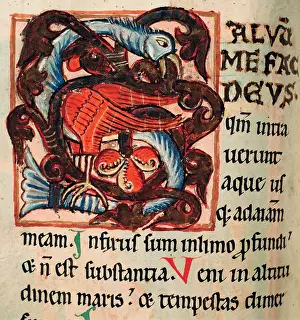 SALVŪ
ME FAC
DEVS·
qm̄ intra
uerunt
aque us
q; ad aīam
meam. Infixus sum in limo ꝓfundi⁊
& n̄ est substantia. Veni in altitu
dinem maris⁊ & tempestas dimer